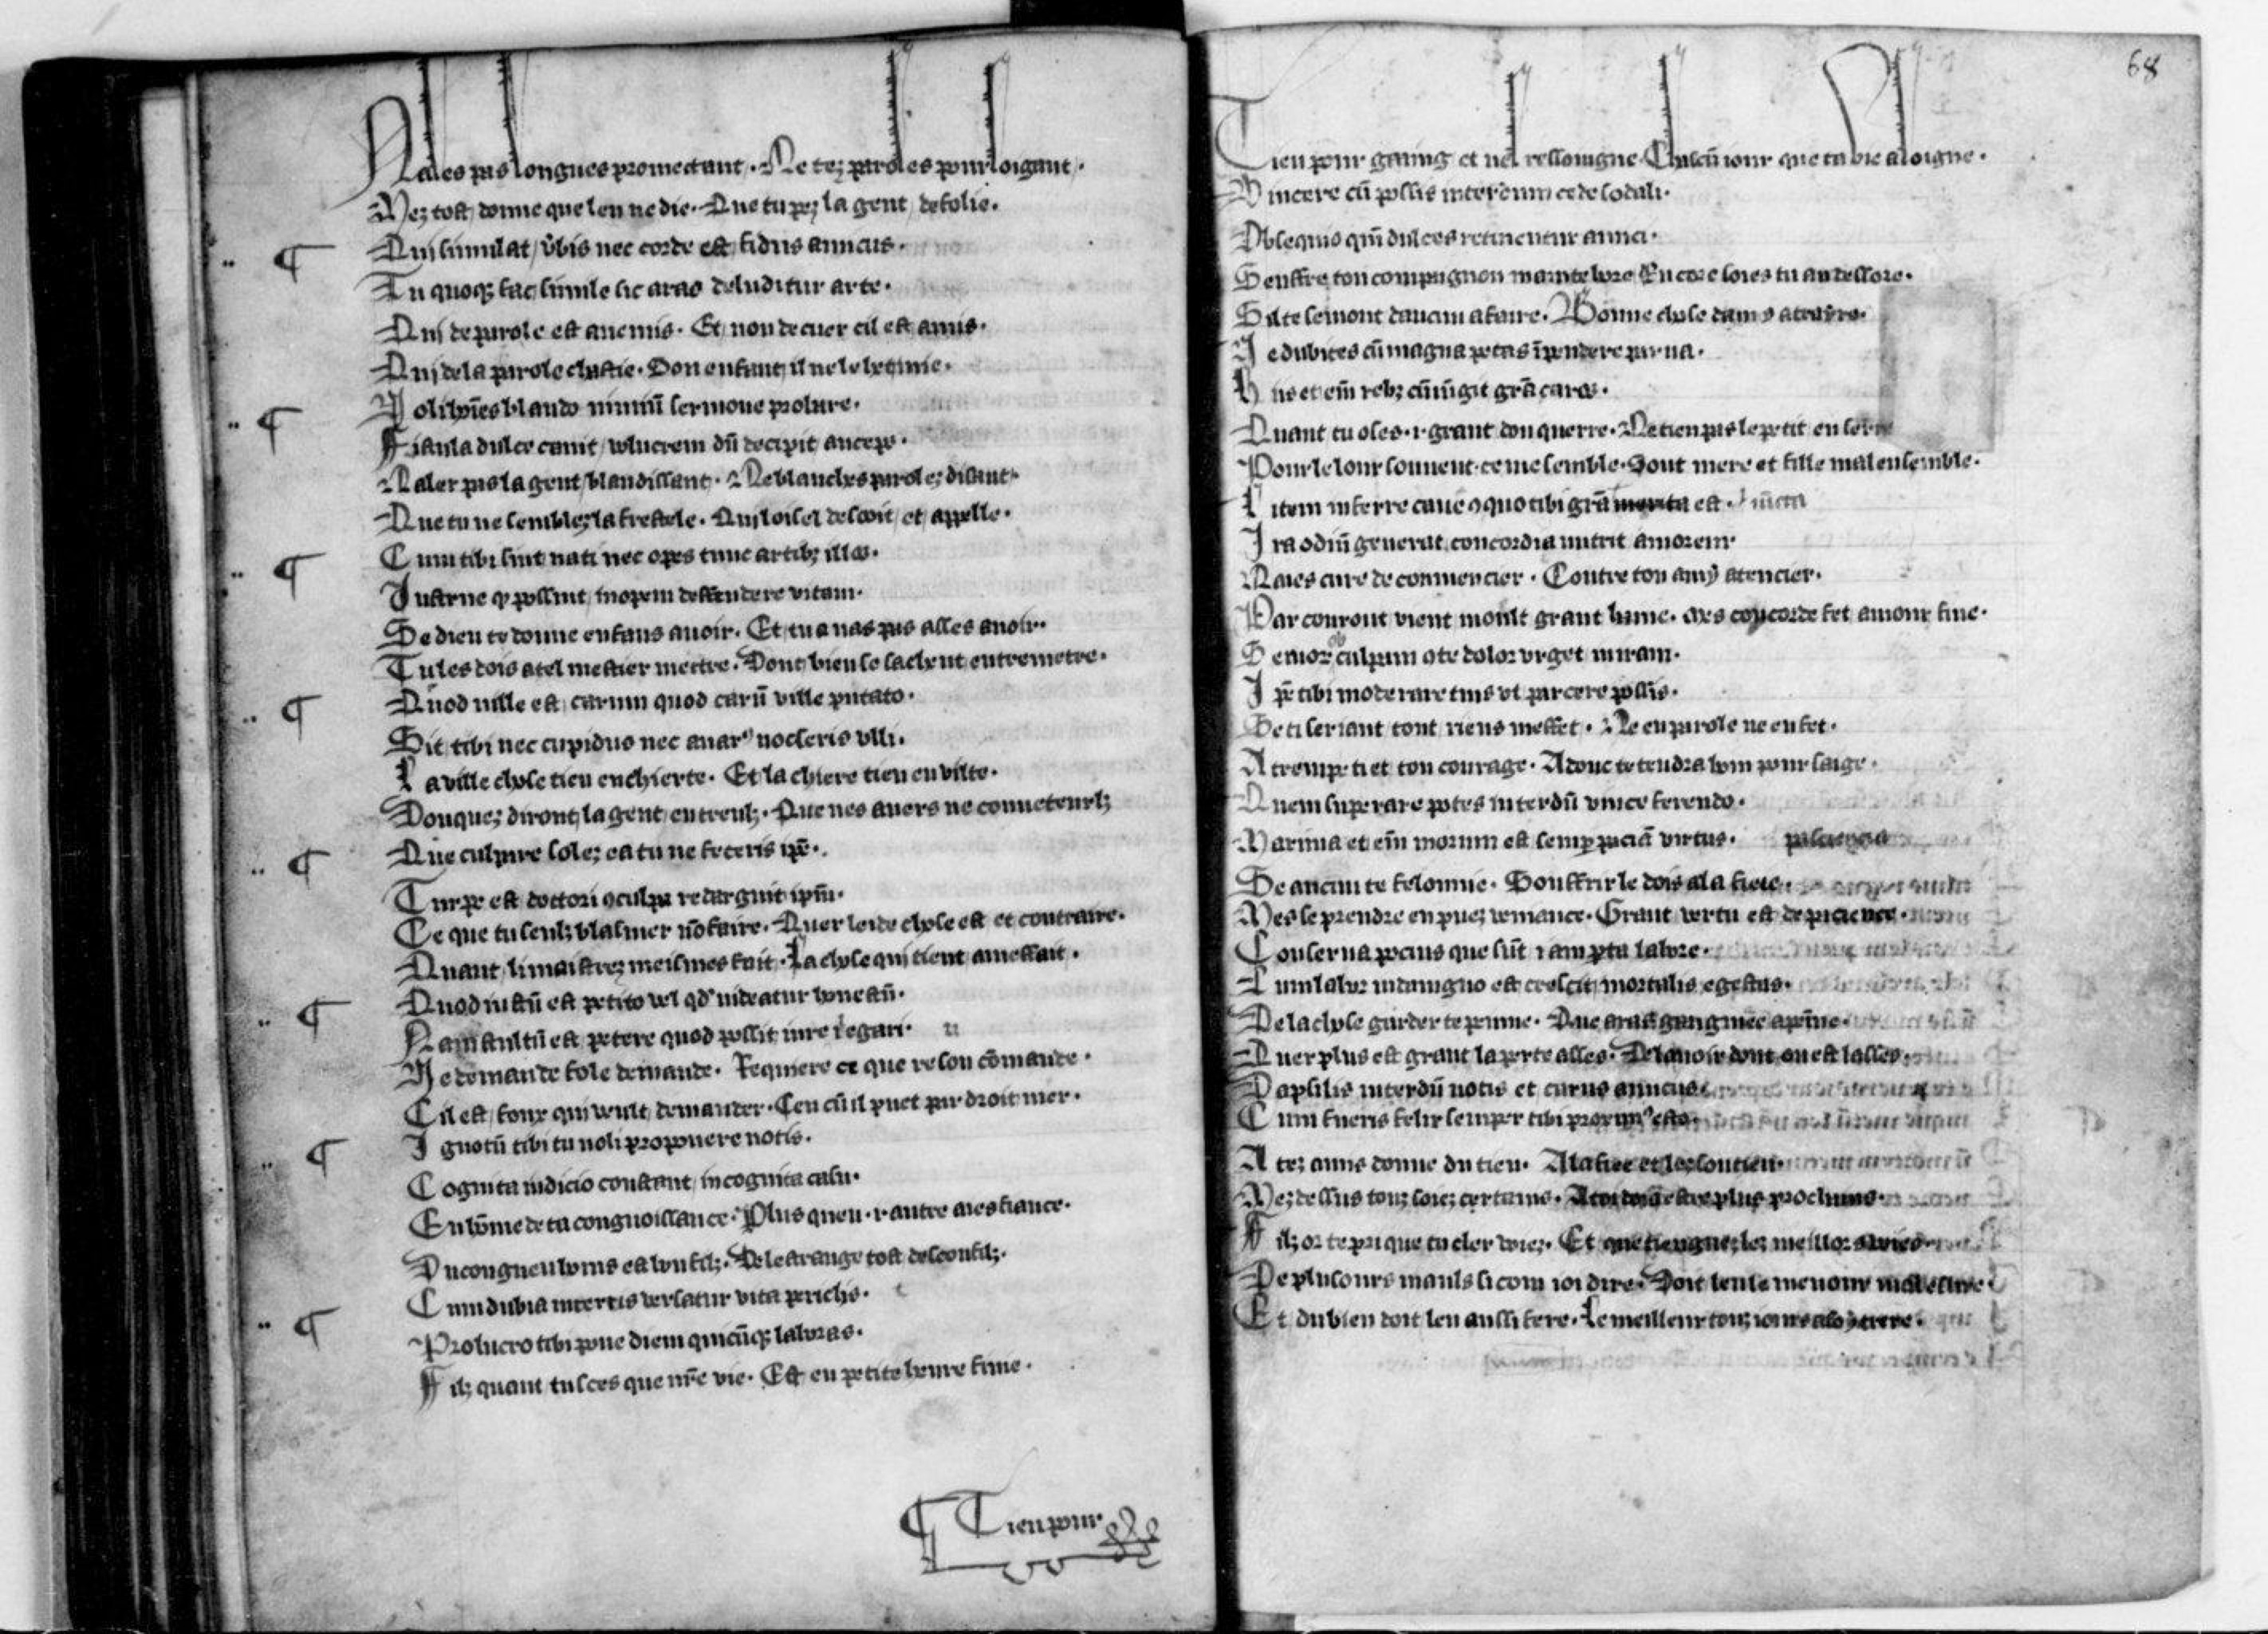 N aies pas longues promectant. Ne tez paroles pourloigant.
Mez tost donne que len ne die. Que tu pez la gent de folie.
Qui simulat v̉bis nec corde est fidus amicus.
Tu quoqꝫ fac simile sic ars deluditur arte.
Qui de parole est anemis. Et non de cuer cil est amis.
Qui de la parole chastie. Son enfant il ne le
Noli hoīes blando nimiū sermone probare.
Fistula dulce canit volucrem dū decipit auceps.
N aler pas la gent blandissant. Ne blanches parolez disant.
Que tu ne semblez la frestele. Qui loisel decoit et appelle.
Cum tibi sint nati nec opes tunc artibꝫ illos.
Instrue qͦ possint inopem deffendere vitam.
Se dieu te donne enfans auoir. Et tu a nas pas asses auoir.
Tu les dois a tel mestier mettre. Dont bien se sachent entremetre.
Quod uille est carum quod carū ville putato.
Sit tibi nec cupidus nec auarꝰ nosceris vlli.
La ville chose tieu en chierte. Et la chiere tien en vilte.
Donquez diront la gent entreulz. Que nes auers ne conueteurlz
Que culpare solez ea tu ne feceris ip̄e.
Turpe est doctori ꝯculpa redarguit ip̄m.
Ce que tu seulz blasmer nō faire. Quer leide chose est et contraire.
Quant li maistrez meismes fait. La chose qui tient a meffait.
Quod iustū est petito vel qd̕ uideatur honestū.
Nam stultū est petere quod possit iure regari. u
Ne demande fole demande. Requiere ce que reson cōmande.
Cil est foux qui veult demander. Ceu cū il puet par droit nier.
Ignotū tibi tu noli proponere notis.
Cognita iudicio constant incognita casu.
En lōme de ta congnoissance. Plus queu .i. autre aies fiance.
Du congneu homs est bon filz. De lestrange tost desconfilz.
Cum dubia incertis versatur vita periclis. t
Pro lucro tibi pone diem quicūqꝫ laboras.
Filz quant tu sces que nr̄e vie. Est en petite heure finie.
¶ Tien pour
68
Tien pour gaaing et nel ressoingne. Chascū iour que ta vie aloigne.
Vincere cū possis interdum cede sodali.
Obsequio qm̄ dulces retinentur amici.
Seuffre ton compagnon mainte hore. Encore soies tu au dessore.
Sil te semont daucun afaire. Bonne chose damis atraire.
Ne dubites cū magna petas īpendere parua.
Hiis etem̄ rebꝫ cūiūgit grā caros.
Quant tu oses .i. grant don querre. Ne tien pas le petit en serre
Pour le lour souuent ce me semble. Sont mere et fille mal ensemble.
Litem inferre caue ꝯ quo tibi grā est. iūcta
Ira odiū generat concordia nutrit amorem.
N aies cure de commencier. Contre ton amy a tencier.
Par couront vient moult grant haine. Mes concorde fet amour fine.
Seruor̄ culpam ob te dolor vrget in iram.
Ip̄e tibi moderare tuis vt parcere possis.
Se ti seriant tont riens meffet. Ne en parole ne en fet.
Atrempe ti et ton courage. Adonc te tendra lom pour saige.
Quem superare potes interdū vince ferendo.
Maxima et eīm morum est semp̱ paciā virtus.
Se aucun te felonnie. Souffrir le dois a la fiete.
Mes le prendre en puez venjance. Grant vertu est de pacience.
Conserua pocius que sūt iam p̱ta labore.
Cum labor in damigno est crescit mortalis egestas.
De la chose garder te penne. Que aras gaaignee a peīne.
Quer plus est grant la perte asses. De lauoir dont on est lasses.
Dapsilis interdū notis et carus amicus.
Cum fueris felix semper tibi proximꝰ esto.
A tez amis donne du tien. A la fiee et les soutien.
Mez dessus touz soiez certains. A toi doiz estre plus prochains.
Filz or te pri que tu cler voiez. Et que tiengnez lez meillors voies.
De plusours mauls si com ioi dire. Doit leu le menour eslire.
Et du bien doit len aussi fere. Le meilleur touz iours a soy trere.